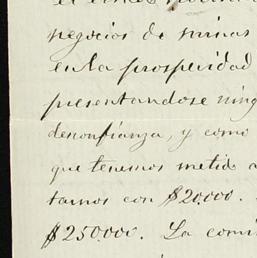 negocios de minas
en la prosperidad
presentandose ning
desconfianza, y como
que tenemos metido a
tarnos con $20.000.
$250.000. La comi